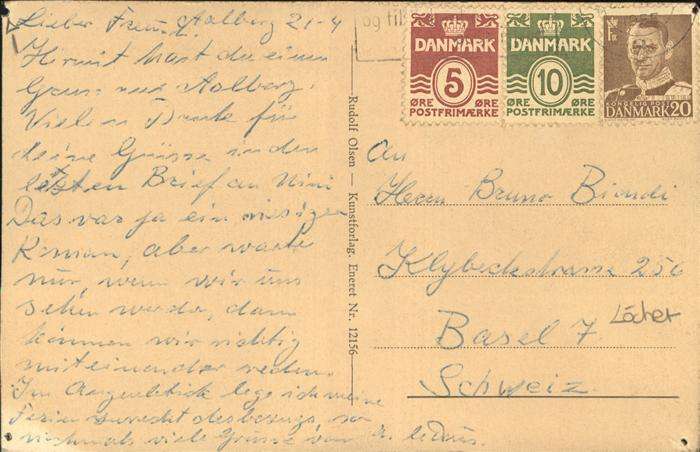 Lieber Freund! Aalborg 21-4
Hiermit hast du einen
Gruss aus Aalborg.
Vielen Danke für
deine Grüsse in den
letzten Brief an Nini
Das war ja ein riesigen
Roman, aber warte
nur, wenn wir uns
sehen werden, dann
können wir richtig
miteinander reden.
Im Augenblick lege ich meine
Ferien zurecht
nochmals viele Grüsse von
Rudolf Olsen — Kunstforlag. Eneret Nr. 12156
DANMARK
5
ØRE ØRE
POSTFRIMÆRKE
DANMARK
10
ØRE ØRE
POSTFRIMÆRKE
KONGELIG POST
DANMARK 20
An
Herrn Bruno Biondi
Klybeckstrasse 250
Basel 7
Löcher
Schweiz